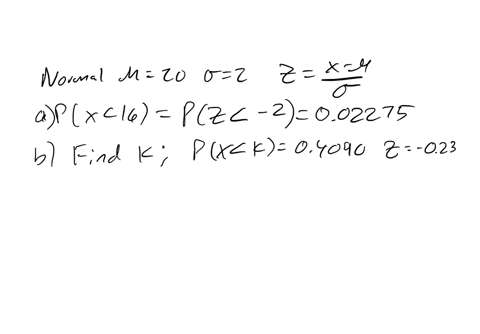 Normal μ=20 σ=2 Z = (x-μ)/σ
a) P(x<16) = P(Z<-2)=0.02275
b) Find K; P(X<K)=0.4090 Z=-0.23